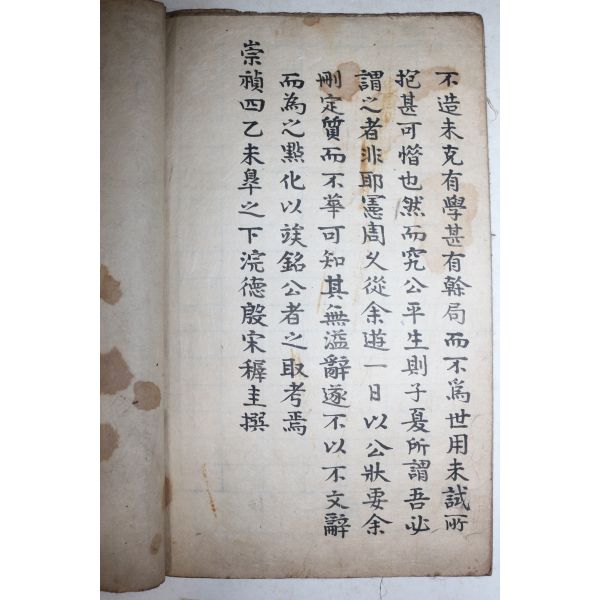 不造未克有學甚有幹局而不爲世用未試所
抱甚可惜也然而究公平生則子夏所謂吾必
謂之者非耶憲周父從余遊一日以公狀要余
刪定質而不華可知其無溢辭遂不以不文辭
而為之點化以竢銘公者之取考焉
崇禎四乙未皐之下浣德殷宋穉圭撰